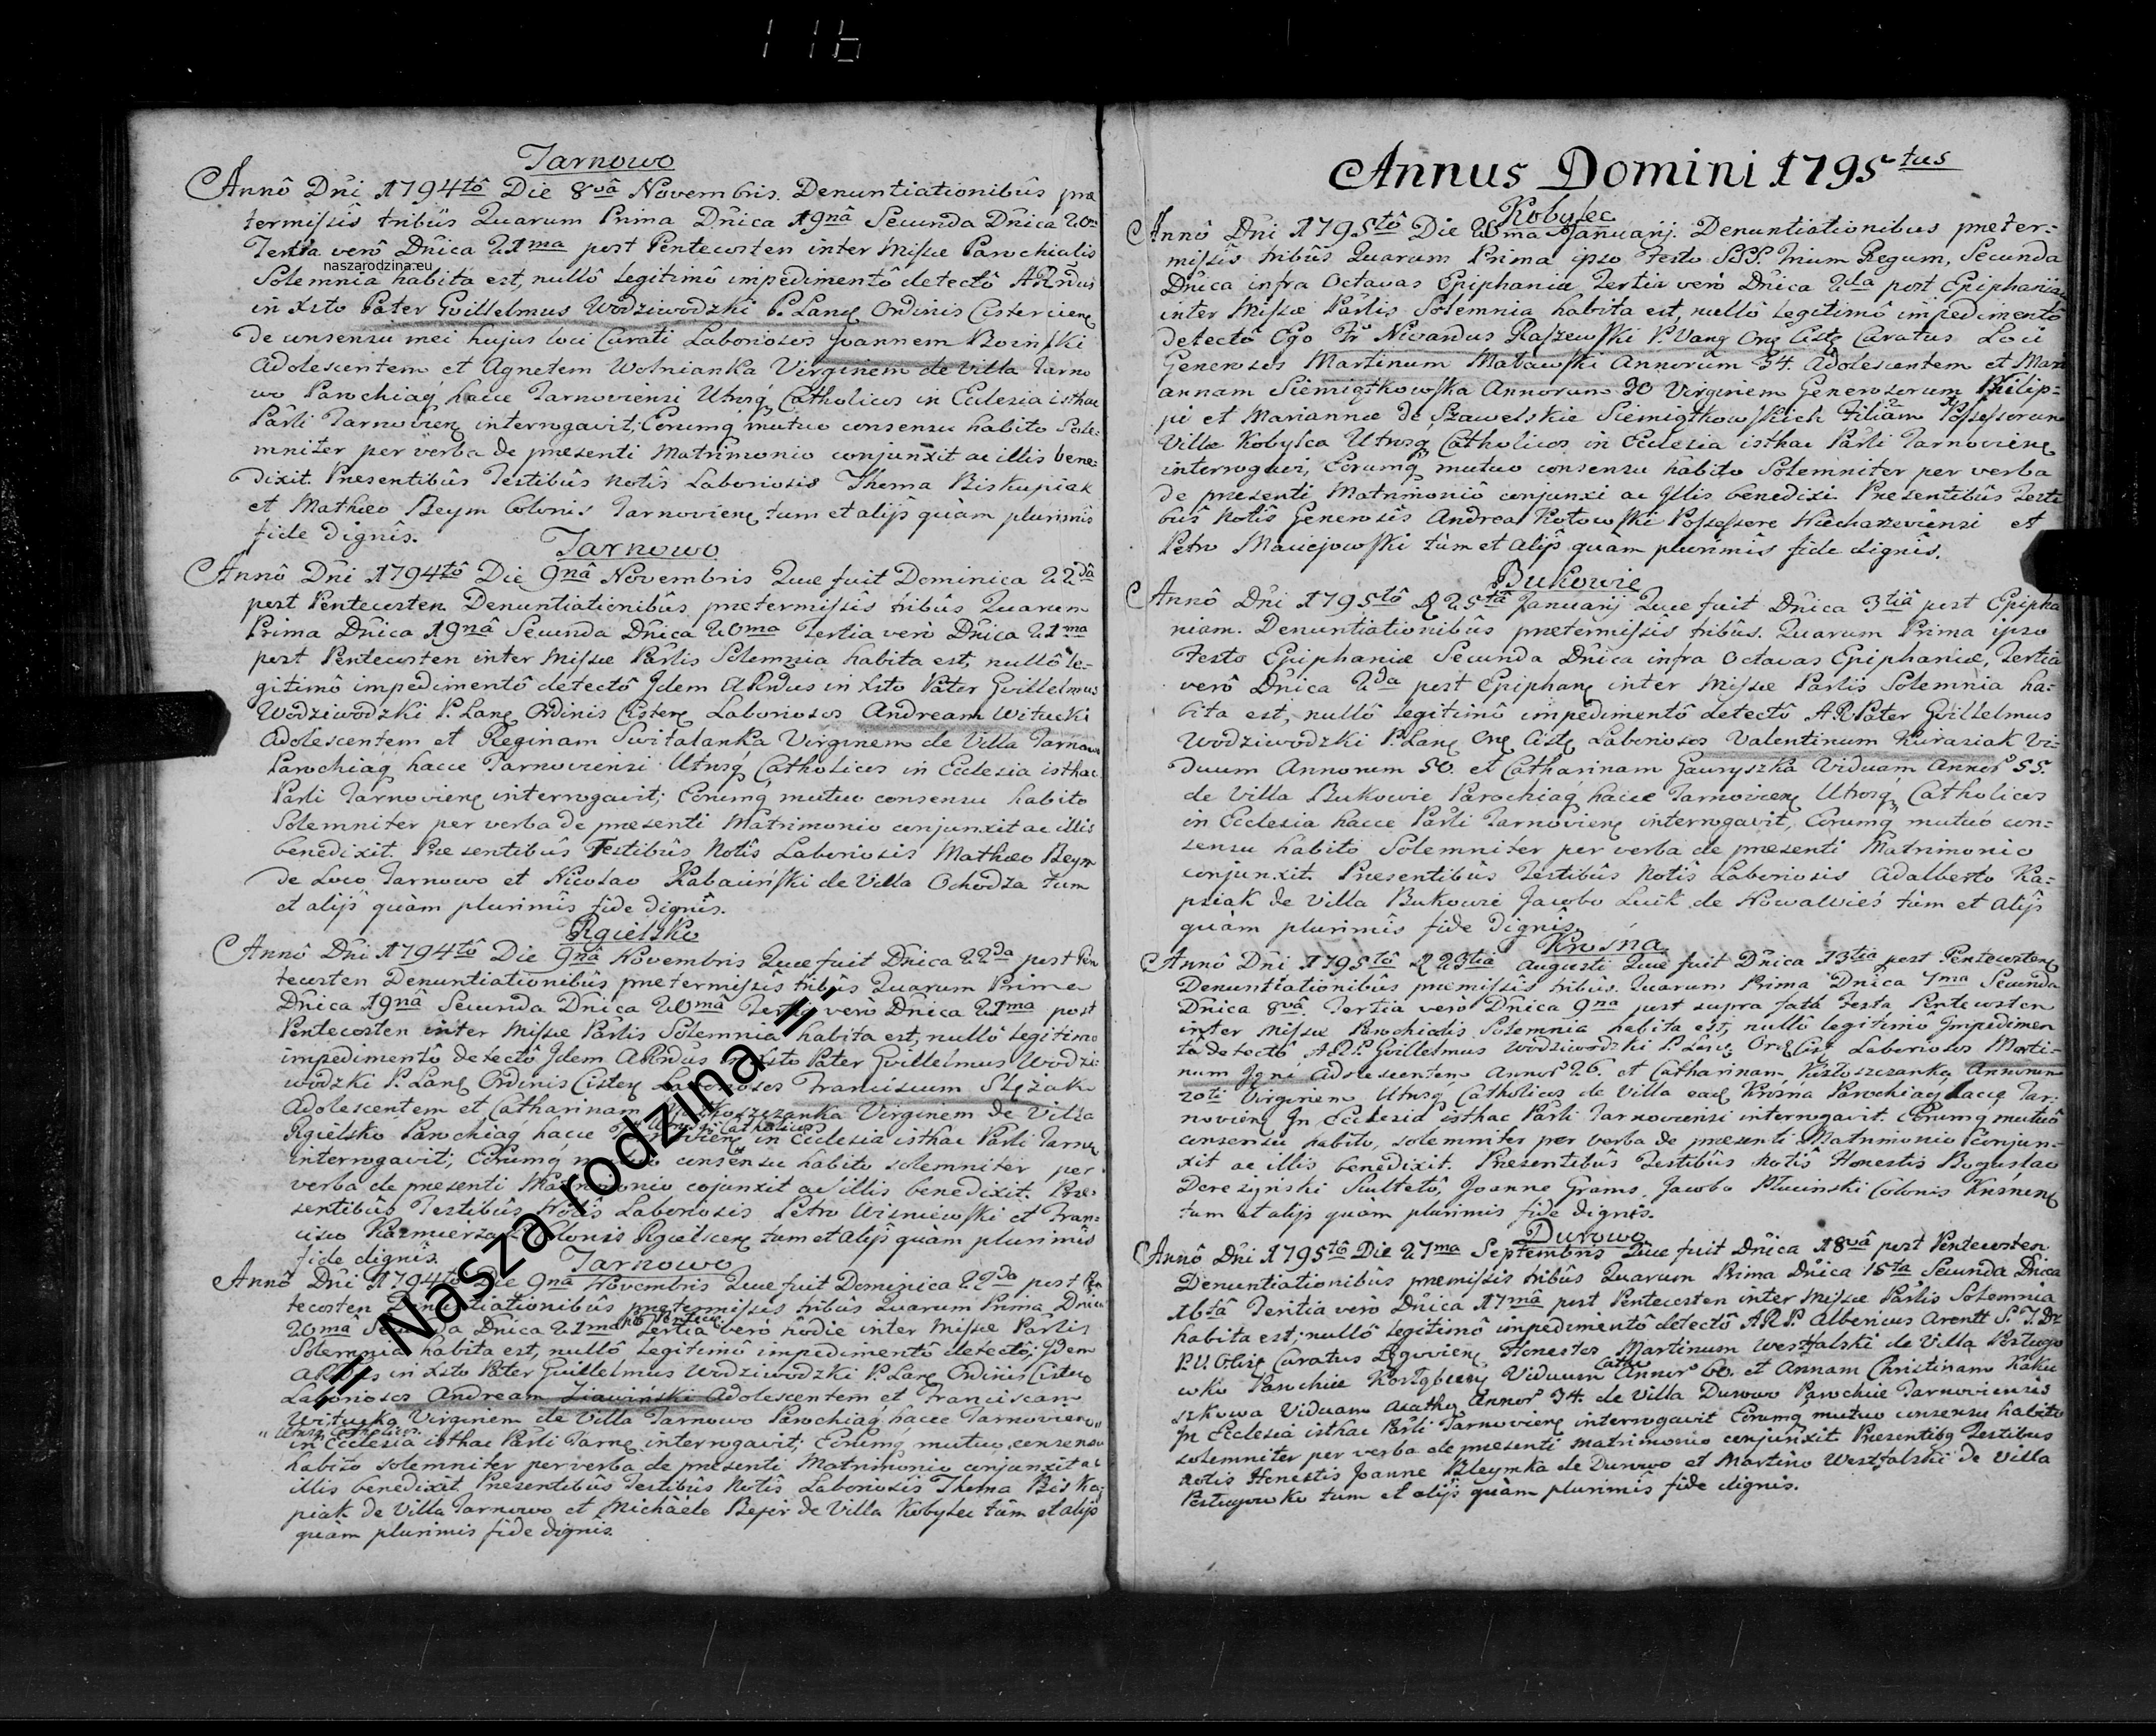 116
Tarnowo
Annô Dni 1794tô Die 8vâ Novembris. Denuntiationibûs præ
termissîs tribûs Quarum Prima Dnica 19nâ Secunda Dnica 20
Tertia verô Dnica 21ma post Pentecosten inter Missæ Parochialis
naszarodzina.eu
Solemnia habita est, nullô legitimô impedimentô detectô ARndus
in Xsto Pater Gvillelmus Wodziwodzki P. Lanę Ordinis Cisterciens
de consensu mei hujus loci Curati Laboriosos Joannem Boinski
Adolescentem et Agnetem Wolnianka Virginem de villa Tarno
wo Parochiaq hacce Tarnoviensi Utrosq Catholicos in Ecclesia isthac
Parli Tarnovien interrogavit; Eorumq mutuo consensu habito Sole-
mniter per verba de presenti Matrimonio conjunxit ac illis bene-
dixit. Presentibûs Testibûs Notîs Laboriosis Thoma Biskupiak
et Mathæo Beym Colonis Tarnovien tum et alijs quàm plurimis
fide dignîs.
Tarnowo
Annô Dni 1794tô Die 9nâ Novembris Quæ fuit Dominica 22dâ
post Pentecosten Denuntiationibûs prætermissîs tribûs Quarum
Prima Dnica 19nâ Secunda Dnica 20ma Tertia verò Dnica 21ma
post Pentecosten inter Missæ Parlis Solemnia habita est, nullô le-
gitimô impedimentô detectô Jdem ARndus in Xsto Pater Gvillelmus
Wodziwodzki P. Lanę Ordinis Cisterc Laboriosos Andream Witucki
Adolescentem et Reginam Switalanka Virginem de Villa Tarnowo
Parochiaq hacce Tarnoviensi Utrosq Catholicos in Ecclesia isthac
Parli Tarnovien interrogavit; Eorumq mutuo consensu habito
Solemniter per verba de presenti Matrimonio conjunxit ac illis
benedixit. Presentibûs Testibûs Notîs Laboriosis Mathæo Beym
de Loco Tarnowo et Nicolao Rabaiński de Villa Ochodza tum
et alijs quàm plurimis fide dignîs.
Rgielsko
Annô Dni 1794tô Die 9nâ Novembris Quæ fuit Dnica 22da post Pen
tecosten Denuntiationibûs prætermissîs tribûs Quarum Prima
Dnica 19nâ Secunda Dnica 20mâ Tertia verò Dnica 21ma post
Pentecosten inter Missæ Parlis Solemnia habita est, nullô legitimo
impedimentô detectô Jdem ARndus in Xsto Pater Gvillelmus Wodzi-
wodzki P. Lanę Ordinis Cisterc Laboriosos Franciscum Slęzak
Adolescentem et Catharinam Virginem de Villa
Utrosq Catholicos
Rgielsko Parochiaq hacce Tarnovien in Ecclesia isthac Parli Tarnov
interrogavit; Eorumq mutuo consensu habito solemniter per
verba de presenti Matrimonio cojunxit ac illis benedixit. Præ-
sentibûs Testibûs Notîs Laboriosis Petro Wisniewski et Fran-
cisco Kazmierza Colonis Rgielscens tum et alijs quàm plurimîs
fide dignîs.
Tarnowo
Annô Dni 1794tô Die 9nâ Novembris Quæ fuit Dominica 22da post Pen
tecosten Denuntiationibûs prætermissîs tribus Quarum Prima Dnica
20mâ Secunda Dnica 21ma Tertia verò hôdie inter Missæ Parlis
Solemnia habita est, nullô Legitimô impedimentô detectô, Jdem
ARndus in Xsto Pater Guillelmus Wodziwodzki P. Lanę Ordinis Cisterc
Laboriosos Andream Ziawiński Adolescentem et Franciscam
Witucka Virginem de Villa Tarnowo Parochiaq hacce Tarnovien
Utrosq Catholicos
in Ecclesia isthac Parli Tarnę interrogavit; Eorumq mutuo consensu
habito solemniter per verba de presenti Matrimonio conjunxit ac
illis benedixit. Presentibûs Testibûs Notîs Laboriosis Thoma Bisku-
piak de Villa Tarnowo et Michaele Bejer de Villa Kobylec tùm et alijs
quàm plurimis fide dignis.
"Nasza rodzina"
Annus Domini 1795tus
Kobylec
Annô Dni 1795tô Die 20ma Januarij. Denuntiationibus preter-
missîs tribûs Quarum Prima ipso Festo SSS. Trium Regum, Secunda
Dnica infra Octavas Epiphaniæ Tertia verò Dnica 2da post Epiphaniam
inter Missæ Parlis Solemnia habita est, nullô legitimô impedimentô
detectô Ego Fr Nivardus Raszewski P. Vang Orę Cistę Curatus Loci
Generosos Martinum Malawski Annorum 34. Adolescentem et Mari
annam Siemiątkowska Annorum 30 Virginem Generosorum Philip-
pi et Mariannæ de Szawelskie Siemiątkowskich Filiam Possessorum
Villæ Kobylca Utrosq Catholicos in Ecclesia isthac Parli Tarnovienę
interrogavi, Eorumq mutuo consensu habito Solemniter per verba
de presenti Matrimoniô conjunxi ac Jllis benedixi. Presentibûs Testi
bus Notîs Generosîs Andrea Kotowski Possessore Wiecharzeviensi et
Petro Maciejowski tùm et Alijs quam plurimîs fide dignîs.
Bukowie
Annô Dni 1795tô D 25tâ Januarij Quæ fuit Dnica 3tiâ post Epipha
niam. Denuntiationibûs prætermissîs tribûs. Quarum Prima ipso
Festo Epiphaniæ Secunda Dnica infra Octavas Epiphaniæ, Tertia
verô Dnica 2da post Epiphanę inter Missæ Parlis Solemnia ha-
bita est, nullô legitimô impedimentô detectô ARPater Gvillelmus
Wodziwodzki P. Lanę Orę Cistę Laboriosos Valentinum Kurasiak Vi-
duum Annorum 50. et Catharinam Gauryszka Viduam Annor 55.
de Villa Bukowie Parochiaq hacce Tarnovienę Utrosq Catholicos
in Ecclesia hacce Parli Tarnovienę interrogavit, Eorumq mutuò con-
sensu habito Solemniter per verba de presenti Matrimonio
conjunxit. Præsentibûs Testibûs Notîs Laboriosis Adalberto Ka-
psiak de Villa Bukowie Jacobo Luik de Nowawieś tùm et Alijs
quàm plurimîs fide dignîs.
Krosna
Annô Dni 1795tô D 23tiâ Augusti Quæ fuit Dnica 13tia post Pentecostenę
Denuntiationibûs premissîs tribûs. Quarum Prima Dnica 7ma Secunda
Dnica 8vâ Tertia verò Dnica 9na post supra fata Festa Pentecosten
inter Missæ Parochialis Solemnia habita est, nullô legitimô Jmpedimen
tô detectô A.R.P. Gvillelmus Wodziwodzki P. Lanę Orę Cist Laboriosos Marti-
num Jgna Adolescentem Annor 26. et Catharinam Annorum
20ti Virginem Utrosq Catholicos de Villa eadę Krosna Parochiaq hacce Tar-
novienę Jn Ecclesia isthac Parli Tarnoviensi interrogavit. Eorumq mutuô
consensu habito, solemniter per verba de presenti Matrimonio conjun-
xit ac illis benedixit. Presentibûs Testibûs Notîs Honestis Boguslao
Derezyński Scultetô, Joanne Grams, Jacobo Plucinski Colonis Krosnenę
tum et alijs quàm plurimis fide dignis.
Durowo
Annô Dni 1795tô Die 27ma Septembris Quæ fuit Dnica 18vâ post Pentecosten
Denuntiationibûs premissis tribûs Quarum Prima Dnica 15ta Secunda Dnica
16tâ Teritia verò Dnica 17mâ post Pentecosten inter Missæ Parlis Solemnia
habita est; nullô legitimô impedimentô detectô A.R.P. Albericus Arentt S. T. Dr
P.U. Curatus Lęgovienę Honestos Martinum Westfalski de Villa Pertugo
wko Parochiæ Viduum Cathą Annor 60. et Annam Christinam Kaku
szkowa Viduam Acathą Annor 34. de Villa Durowo Parochiæ Tarnoviensis
Jn Ecclesia isthac Parli Tarnovienę interrogavit Eorumq mutuo consensu habito
solemniter per verba de presenti matrimonio conjunxit. Presentibq Testibus
Notis Honestis Joanne Bleymka de Durowo et Martino Westfalski de Villa
Pertugowko tum et alijs quàm plurimîs fide dignis.